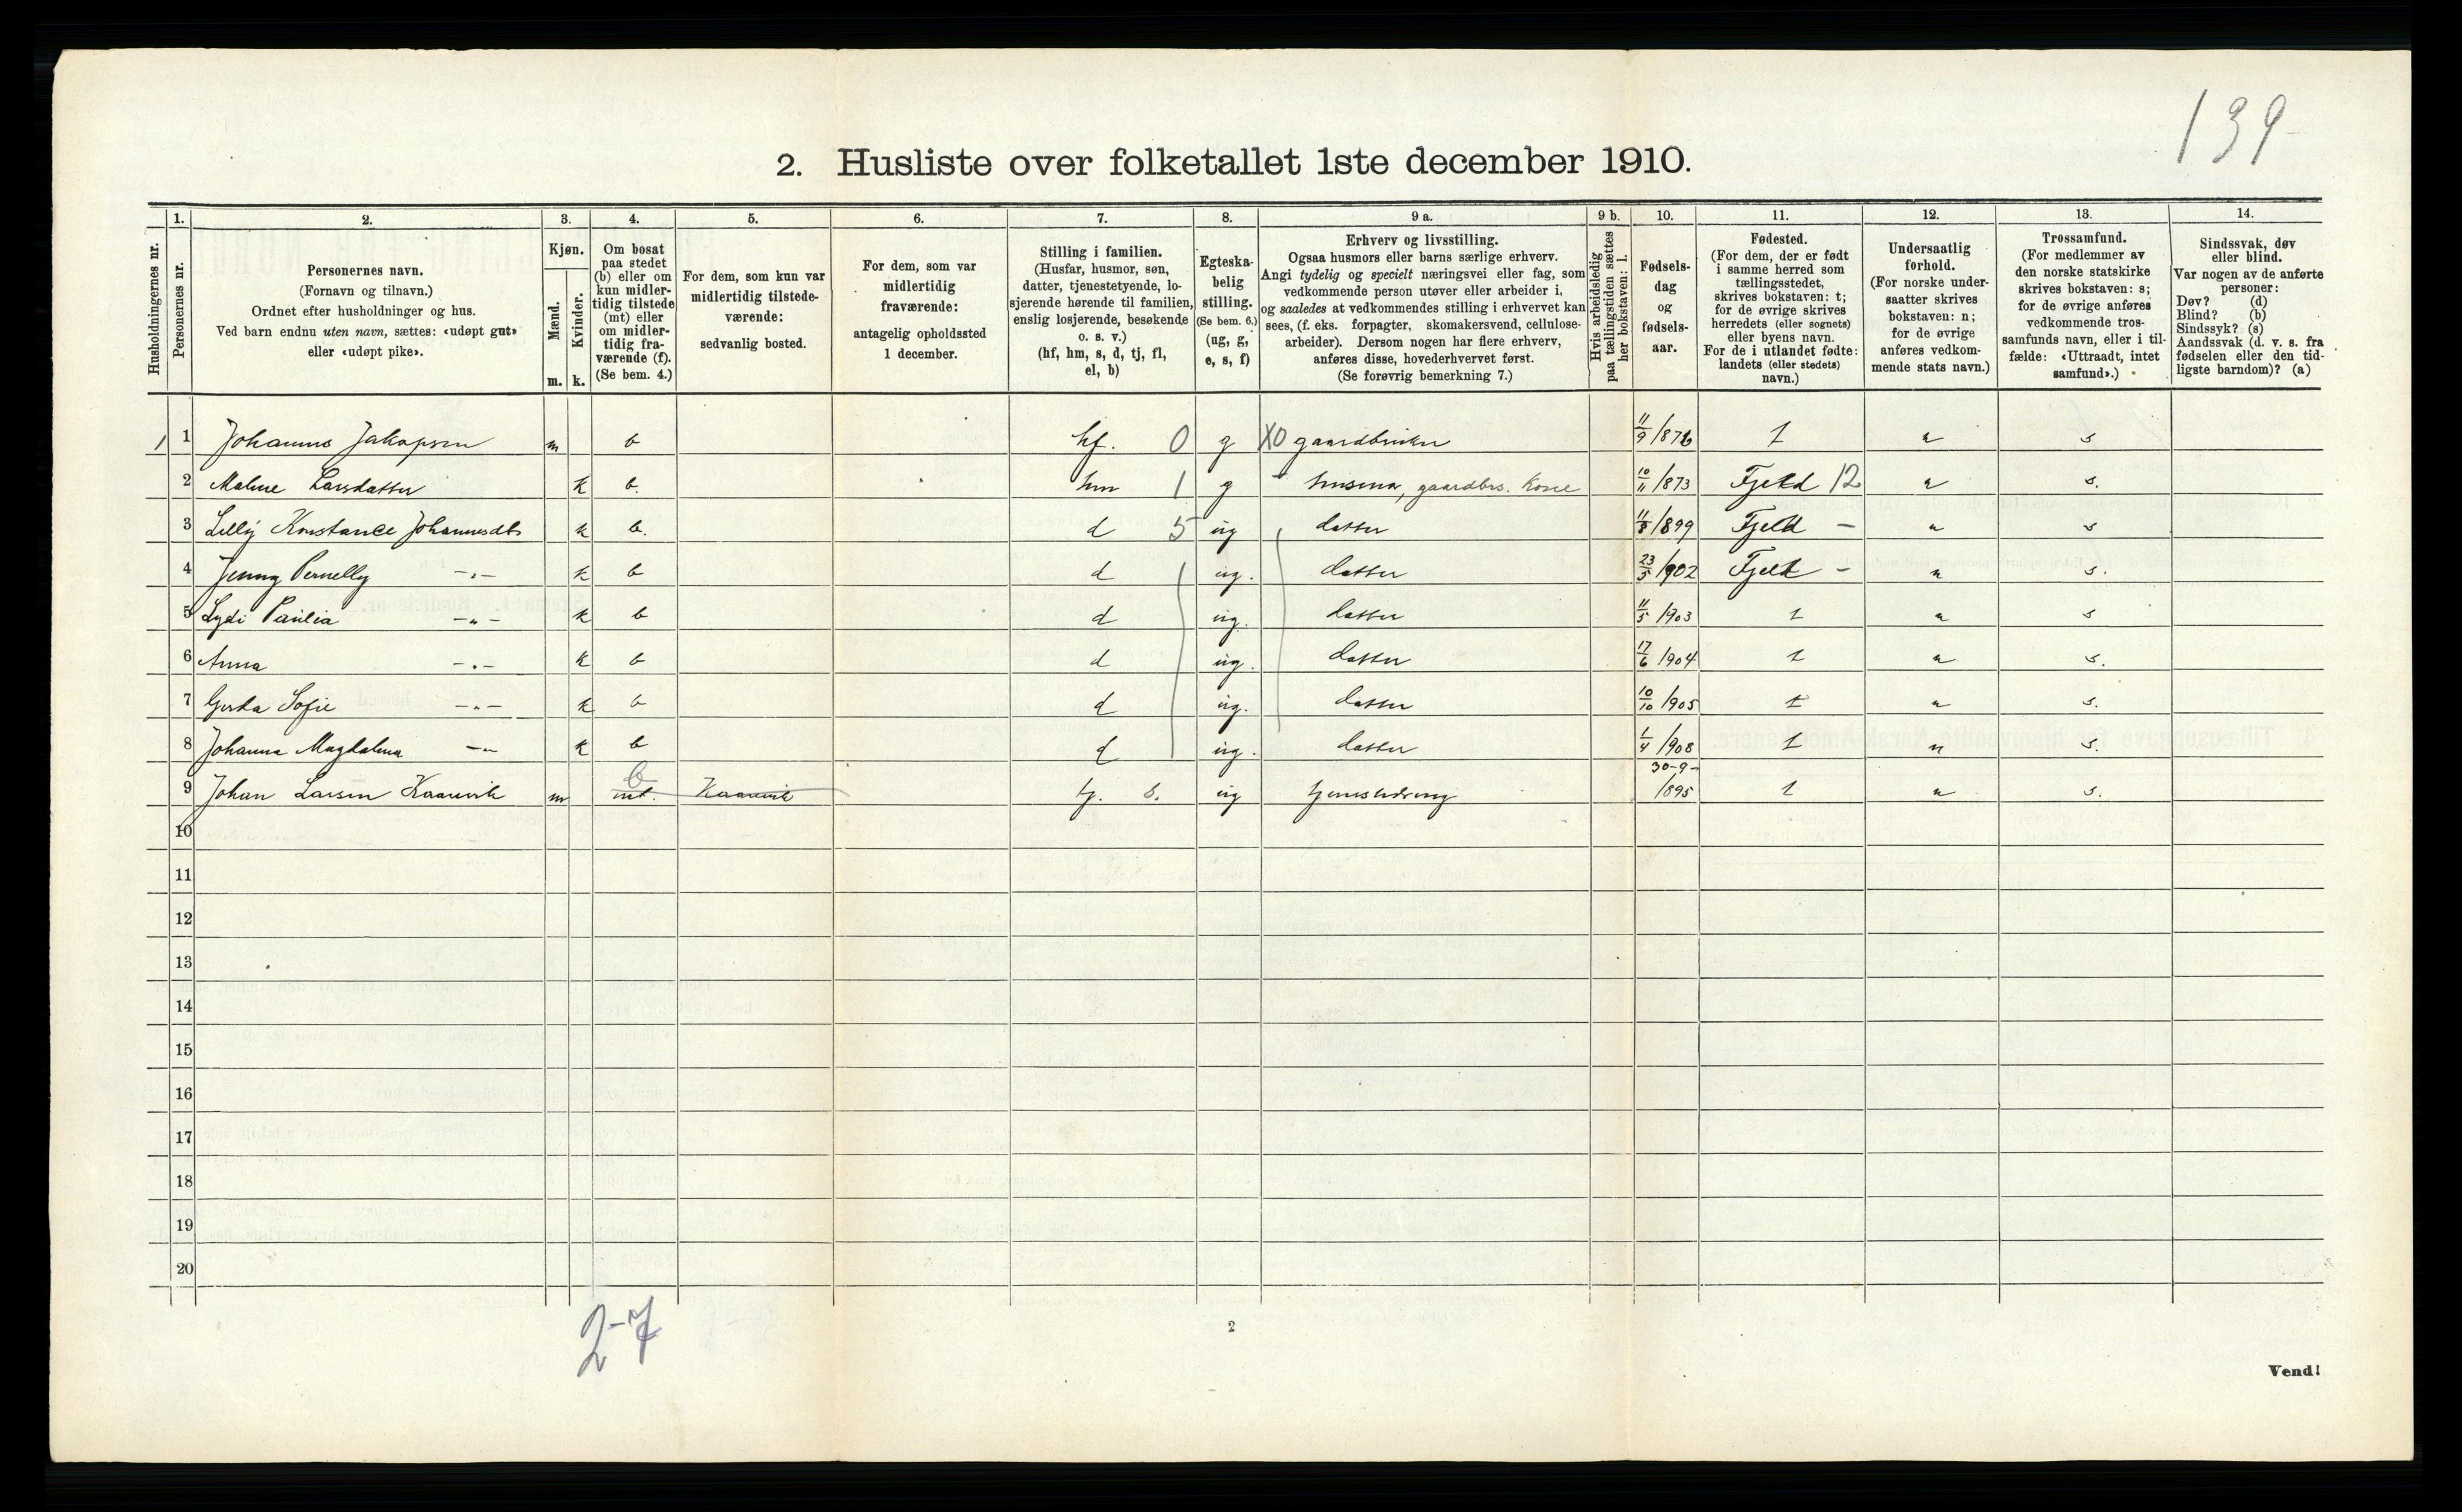 139
2. Husliste over folketallet 1ste december 1910.
Husholdningernes nr.
1.
Personernes nr.
2.
Personernes navn.
(Fornavn og tilnavn.)
Ordnet efter husholdninger og hus.
Ved barn endnu uten navn, sættes: «udøpt gut»
eller «udøpt pike».
3.
Kjøn.
Mænd.
Kvinder.
m. k.
4.
Om bosat
paa stedet
(b) eller om
kun midler-
tidig tilstede
(mt) eller
om midler-
tidig fra-
værende (f).
(Se bem. 4.)
5.
For dem, som kun var
midlertidig tilstede-
værende:
sedvanlig bosted.
6.
For dem, som var
midlertidig
fraværende:
antagelig opholdssted
1 december.
7.
Stilling i familien.
(Husfar, husmor, søn,
datter, tjenestetyende, lo-
sjerende hørende til familien,
enslig losjerende, besøkende
o. s. v.)
(hf, hm, s, d, tj, fl,
el, b)
8.
Egteska-
belig
stilling.
(Se bem. 6.)
(ug, g,
e, s, f)
9 a.
Erhverv og livsstilling.
Ogsaa husmors eller barns særlige erhverv.
Angi tydelig og specielt næringsvei eller fag, som
vedkommende person utøver eller arbeider i,
og saaledes at vedkommendes stilling i erhvervet kan
sees, (f. eks. forpagter, skomakersvend, cellulose-
arbeider). Dersom nogen har flere erhverv,
anføres disse, hovederhvervet først.
(Se forøvrig bemerkning 7.)
9 b.
Hvis arbeidsledig
paa tællingstiden sættes
her bokstaven: l.
10.
Fødsels-
dag
og
fødsels-
aar.
11.
Fødested.
(For dem, der er født
i samme herred som
tællingsstedet,
skrives bokstaven: t;
for de øvrige skrives
herredets (eller sognets)
eller byens navn.
For de i utlandet fødte:
landets (eller stedets)
navn.)
12.
Undersaatlig
forhold.
(For norske under-
saatter skrives
bokstaven: n;
for de øvrige
anføres vedkom-
mende stats navn.)
13.
Trossamfund.
(For medlemmer av
den norske statskirke
skrives bokstaven: s;
for de øvrige anføres
vedkommende tros-
samfunds navn, eller i til-
fælde: «Uttraadt, intet
samfund».)
14.
Sindssvak, døv
eller blind.
Var nogen av de anførte
personer:
Døv? (d)
Blind? (b)
Sindssyk? (s)
Aandssvak (d. v. s. fra
fødselen eller den tid-
ligste barndom)? (a)
1 1 Johannes Jakopsen m b hf. 0 g X0 gaardbruker 11/9 /87 t n s
2 Malene Larsdatter k b. hm 1 g - husmor, gaardbrs. kone 10/11 /873 Fjeld 12 n s.
3 Lelly Konstance Johannesdt. k b. d 5 ug datter 11/8 /899 Fjeld - n s
4 Jenny Pernelly -"- k b d ug. datter 23/5 /902 Fjeld - n s.
5 Lydi Paulia -"- k b d ug. datter 11/5 /903 t n s
6 Anna -"- k b d ug. datter 17/6 /904 t n s.
7 Gerda Sofie -"- k b d ug. datter 10/10 /905 t n s.
8 Johanna Magdalena -"- k b d ug. datter 1/4 /908 t n s.
9 Johan Larsen Kaarvik m b mt. Kaarvik tj. s. ug tjenestedreng 30-9- /895 t n s.
10
11
12
13
14
15
16
17
18
19
20
2-7
2
Vend!